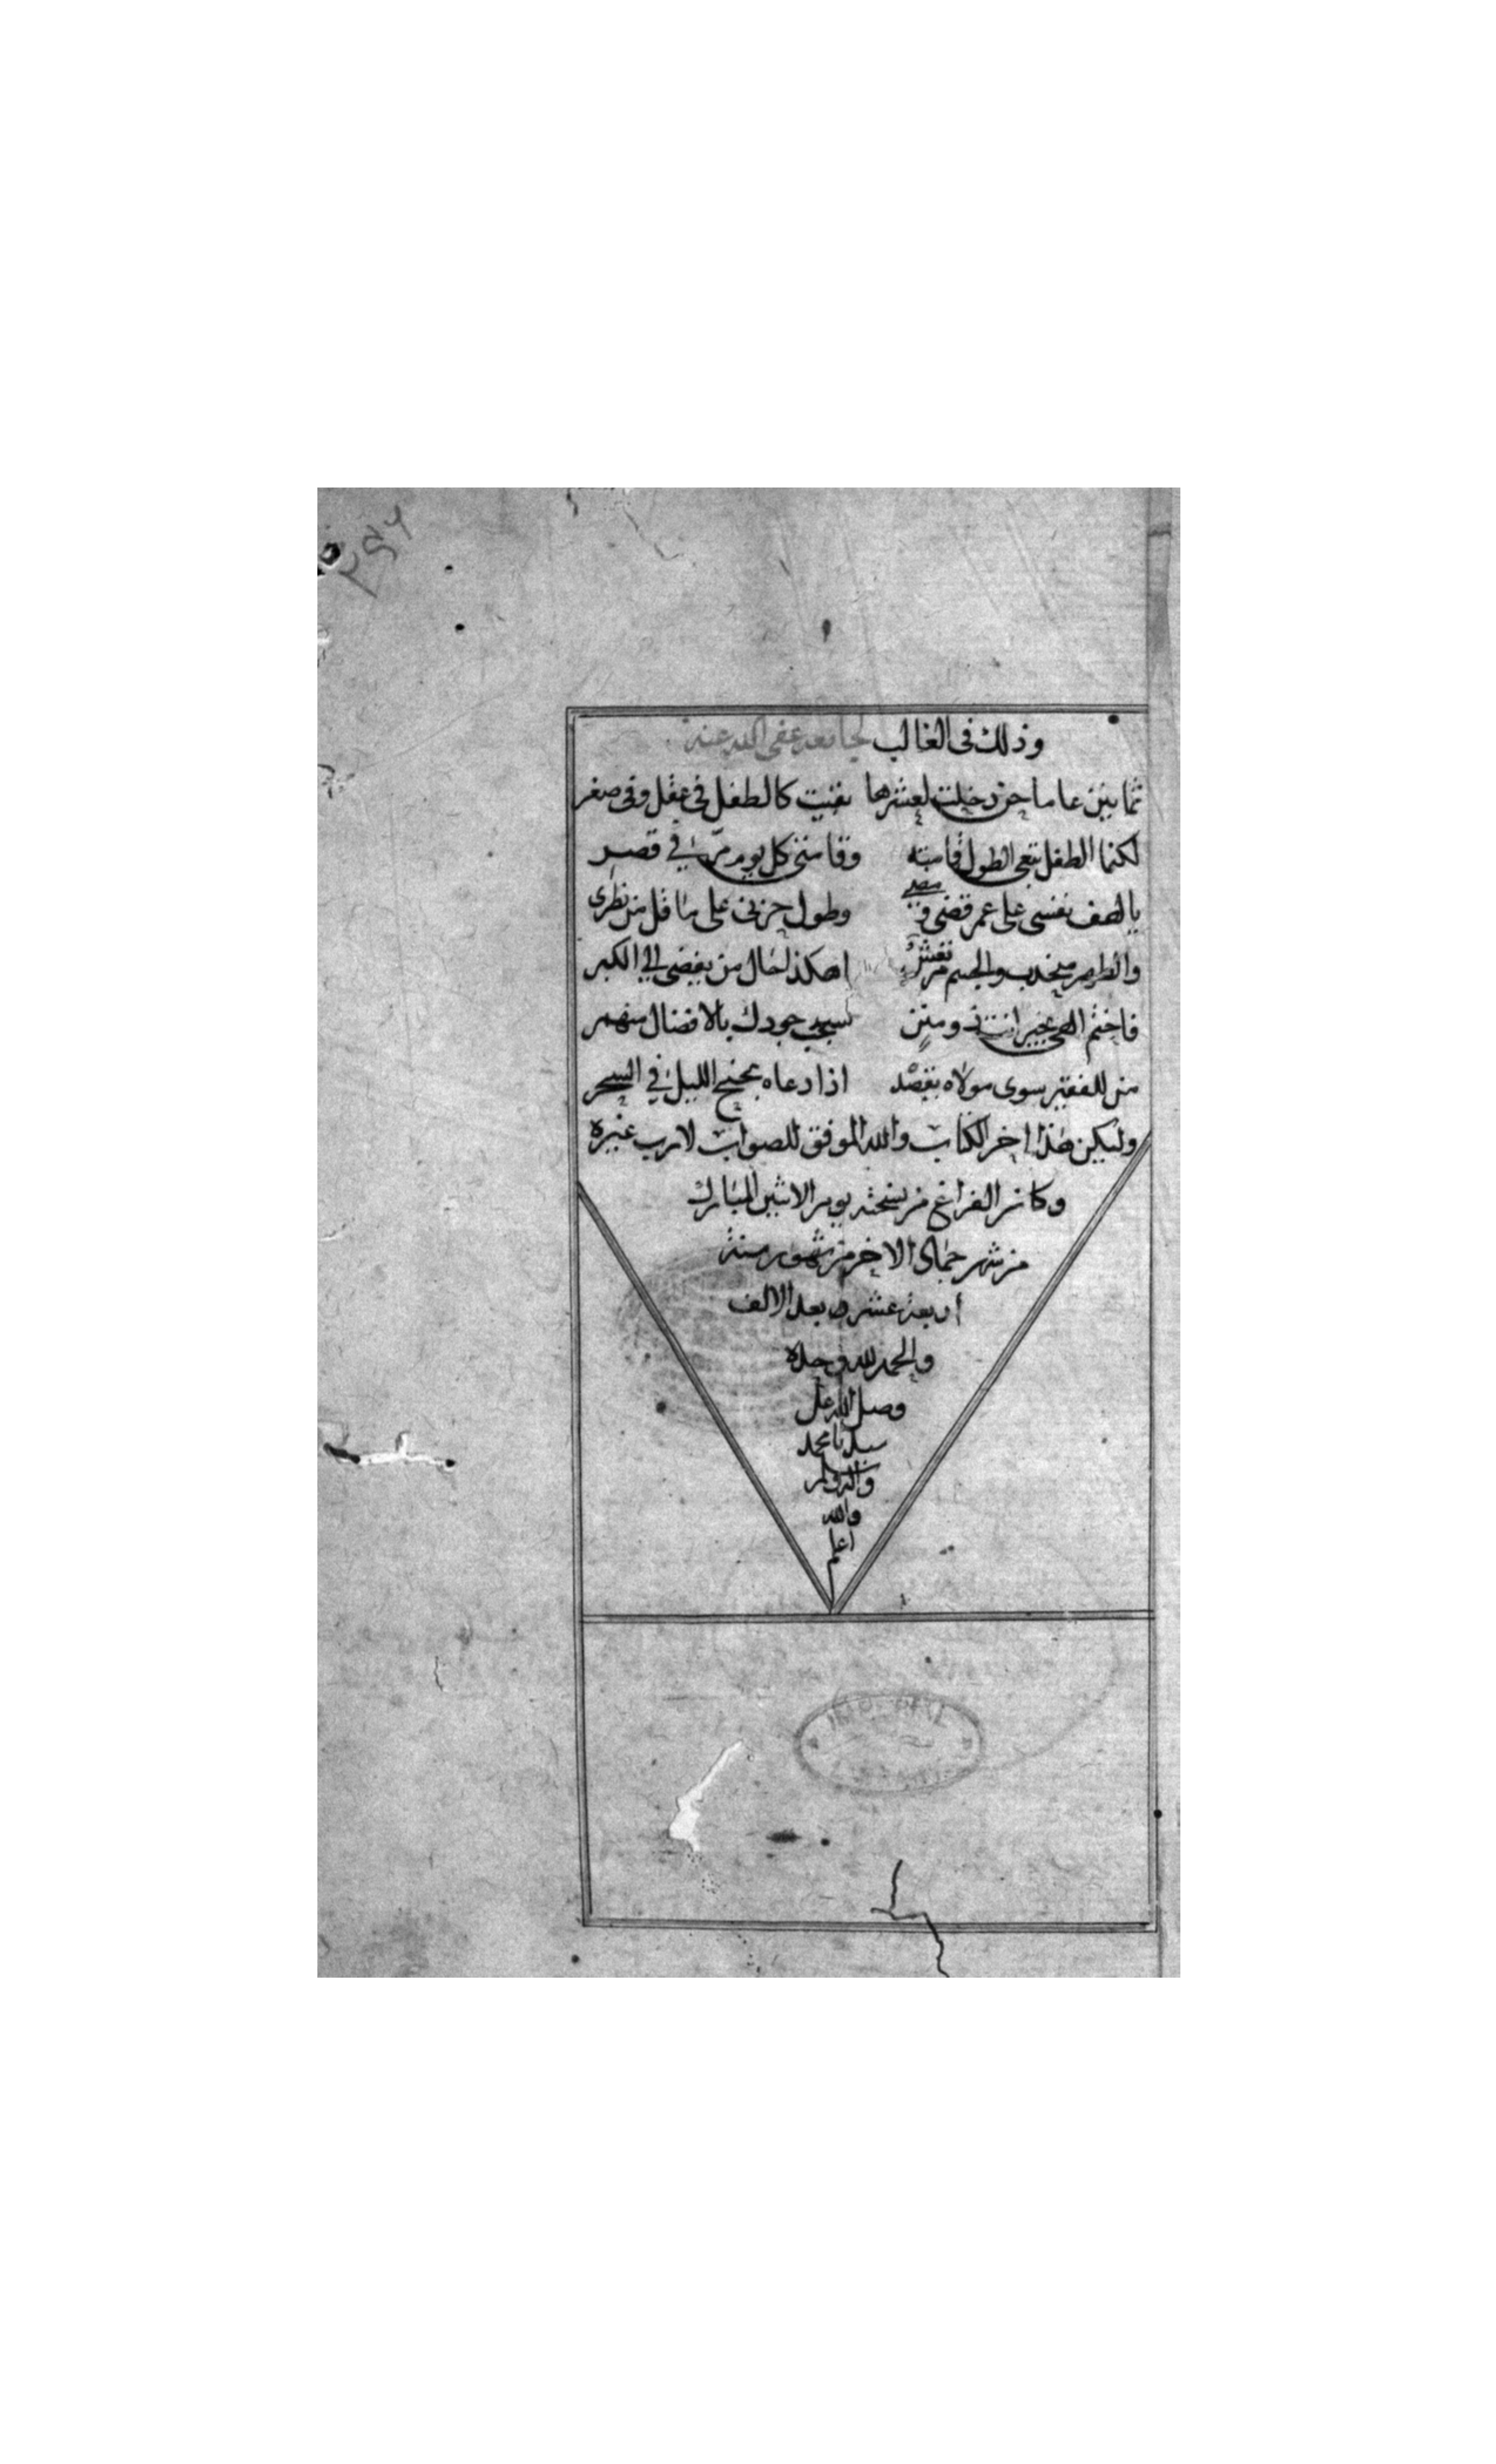 وذلك فى الغالب لجامعه عفى الله عنه
ثمانين عاما حين دخلت لعشرها بقيت كالطفل فى عقل وفى صغر
لكنما الطفل يبغى الطول قامته وقامتى كل يوم مرّ فى قصر
يالهف نفسى على عمر قضى ومضى وطول حزنى على ما قل من نظرى
والظهر منحدب والجسم مرتعش اهكذا لحال من يفضى الى الكبر
فاختم الهى بخير انت ذو منن سحب جودك بالافضال منهمر
من للفقير سوى مولاه يقصد اذا دعاه بجنح الليل فى السحر
وليكن هذا اخر الكتاب والله الموفق للصواب لارب غيره
وكان الفراغ من نسخته يوم الاثنين المبارك
من شهر جماى الاخر من شهور سنة
أربعة عشر بعد الالف
والحمد لله وحده
وصل الله على
سيدنا محمد
واله وسلم
والله
اعلم